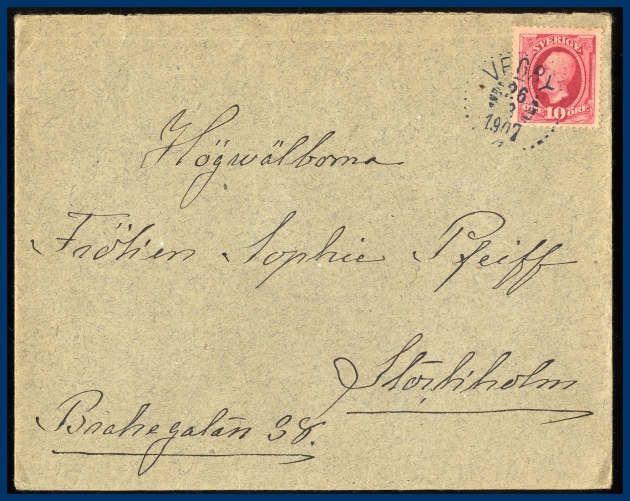 SVERIGE
ÖRE 10 ÖRE
26
1907
Högwälborna
Fröken Sophie Pfeiff
Stockholm
Brahegatan 38.